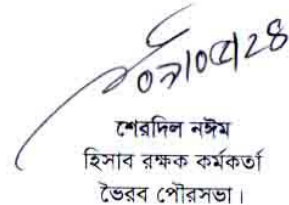 ০৭/০৫/২৪
শেরদিল নঈম
হিসাব রক্ষক কর্মকর্তা
ভৈরব পৌরসভা।